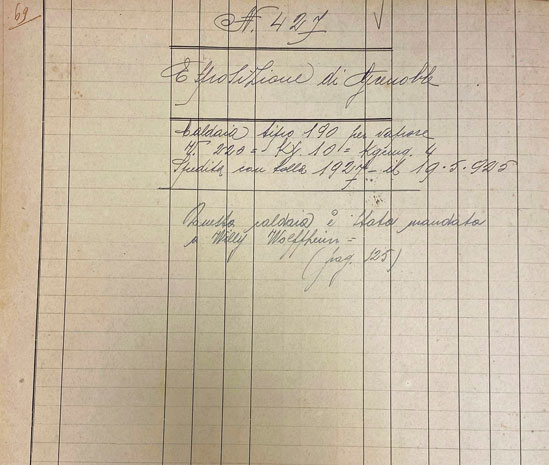 69
N. 427
Esposizione di Grenoble
Caldaia tipo 190 per vapore
V. 220 = Kg. 10 = Kgcmq. 4
Spedita con bolla 1927 - il 19.5.925
Questa caldaia è stata mandata
a Willy
(pag. 125)